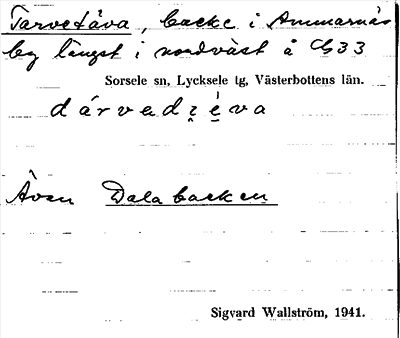 Tarvetåva, backe i Ammarnäs
by längst i nordväst å G33
Sorsele sn, Lycksele tg, Västerbottens län.
Även Dalabacken
Sigvard Wallström, 1941.